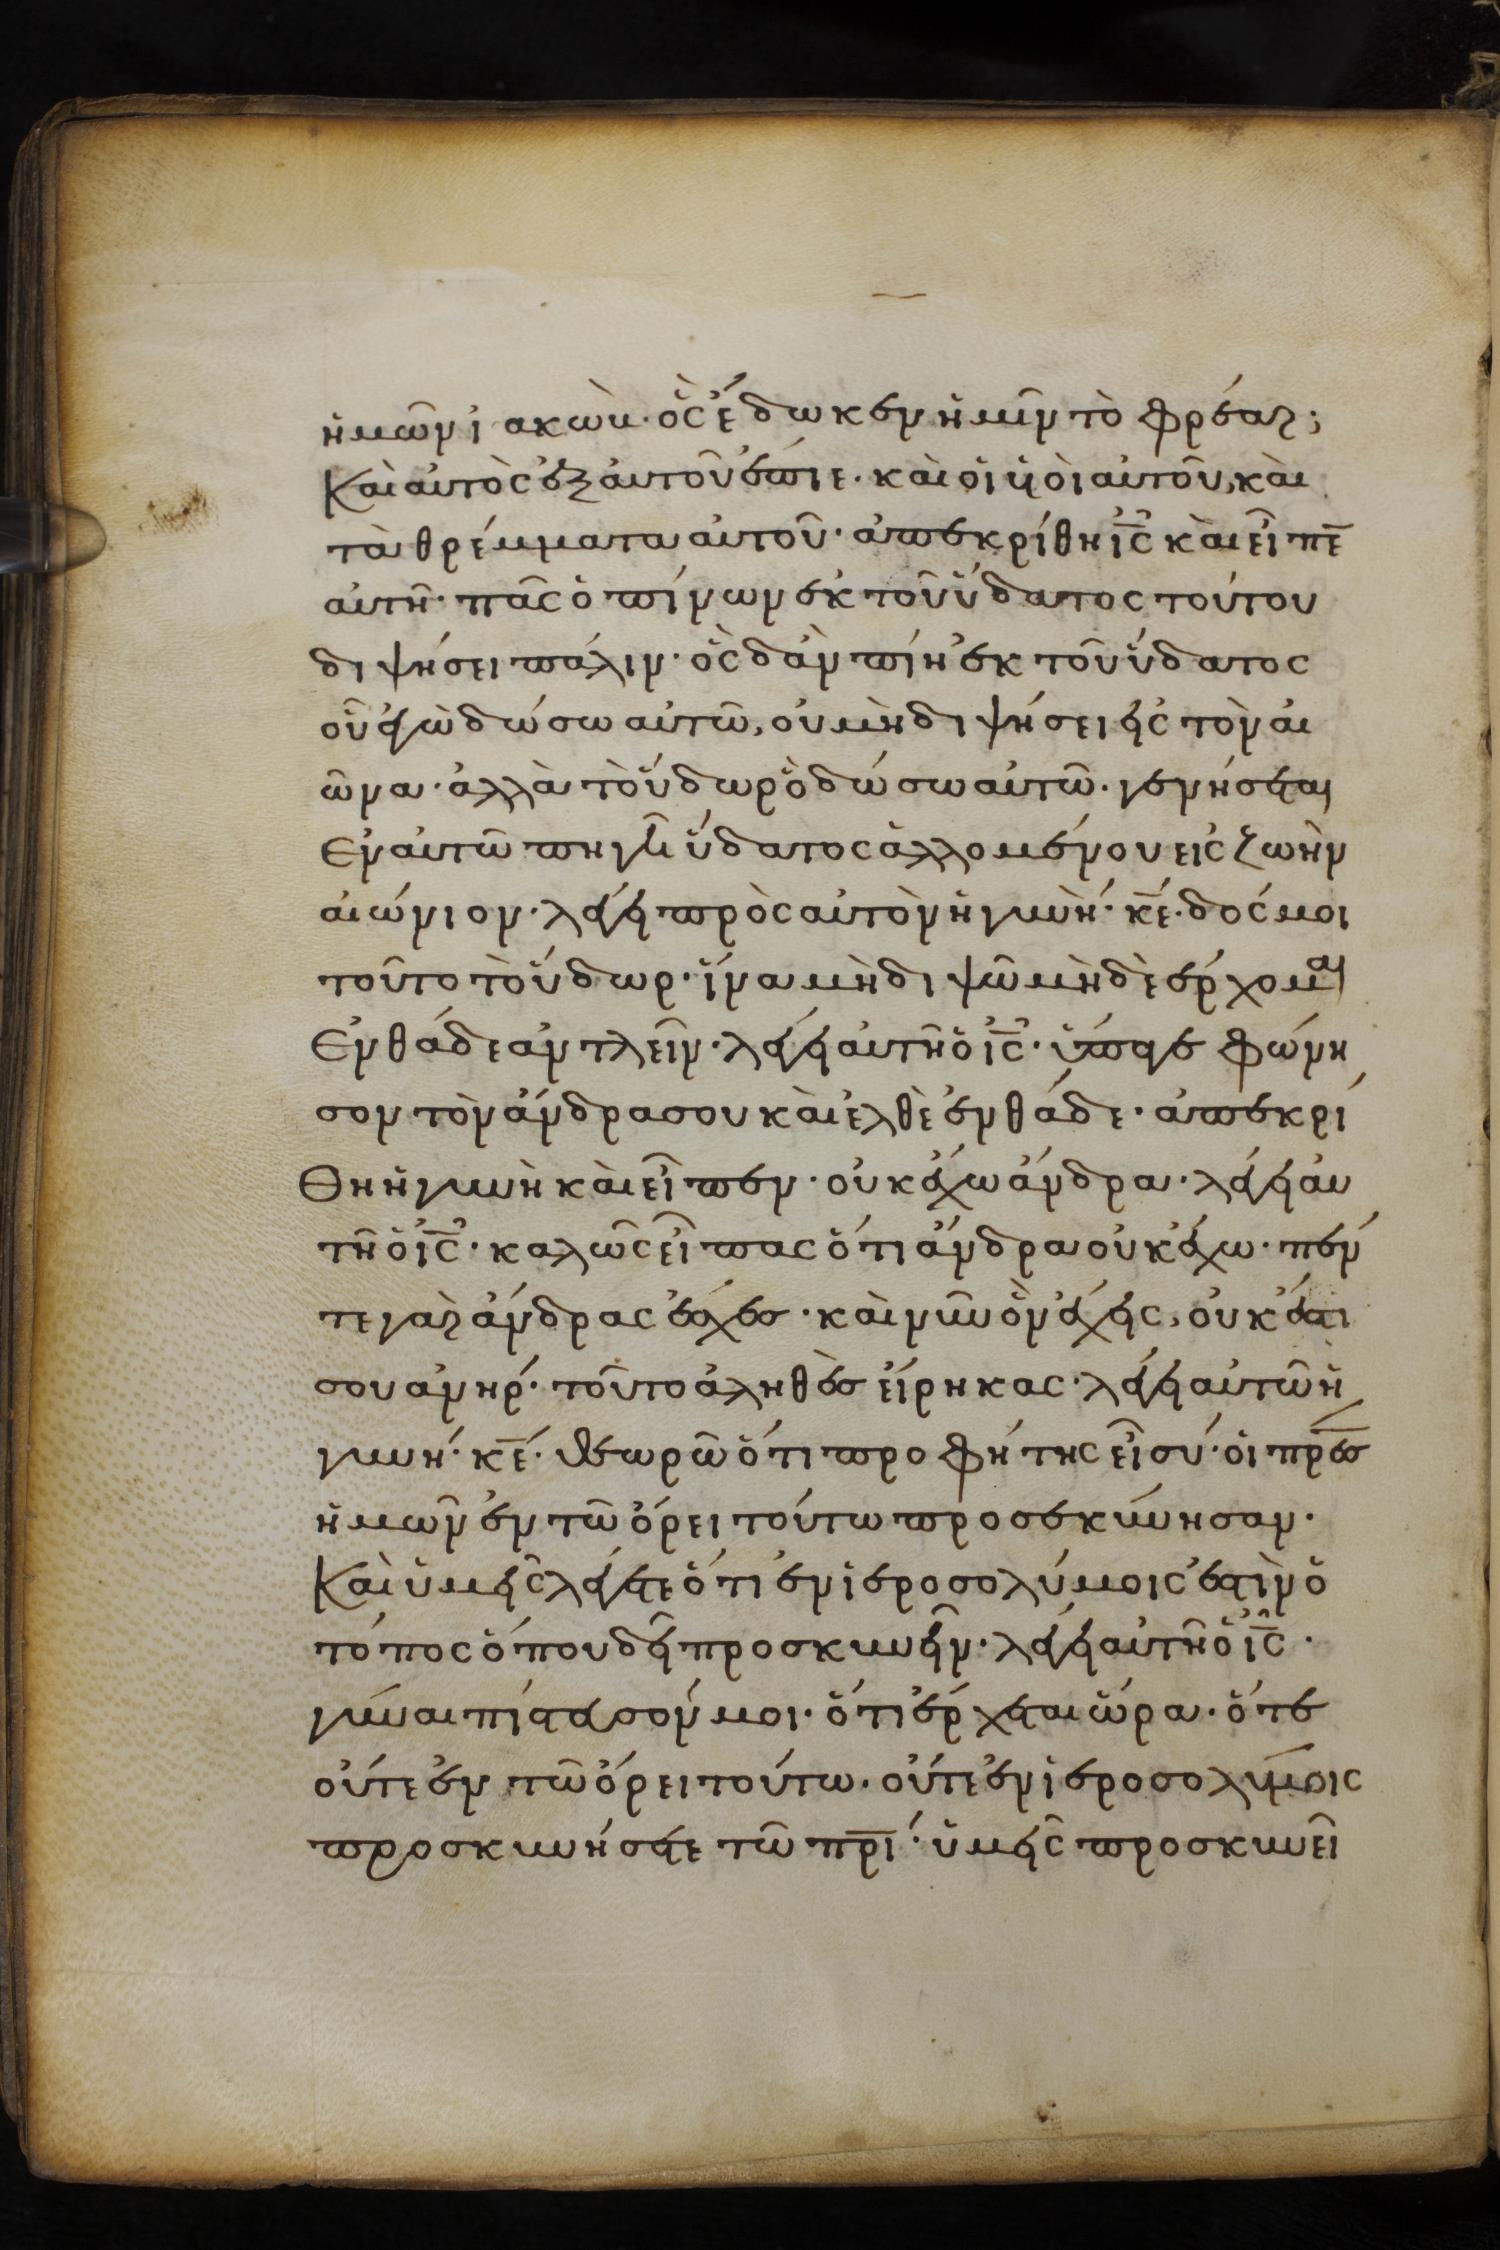 ἡμῶν ϊακὼβ· ὃς ἔδωκεν ἡμῖν τὸ φρέαρ;
Καὶ αὐτὸς ἐξ αὐτοῦ ἔπιε· καὶ οἱ υἱοὶ αὐτοῦ, καὶ
τὰ θρέμματα αὐτοῦ· ἀπεκρίθη ις̅ καὶ εἶπε̅
αὐτῆ· πᾶς ὁ πίνων ἐκ τοῦ ὕδατος τούτου
διψήσει πάλιν· ὃς δ ἂν πίη ἐκ τοῦ ὕδατος
οὗ ἐγὼ δώσω αὐτῶ, οὐ μὴ διψήσει εἰς τὸν αἰ
ῶνα· ἀλλὰ τὸ ὕδωρ ὃ δώσω αὐτῶ· γενήσεται
Ἐν αὐτῶ πηγὴ ὕδατος ἁλλομένου εἰς ζωὴν
αἰώνιον· λέγει πρὸς αὐτὸν ἡ γυνή· κ̅ε̅· δός μοι
τοῦτο τὸ ὕδωρ· ἵνα μὴ διψῶ μὴδὲ ἔρχομαι
Ἐνθάδε ἀντλεῖν· λέγει αὐτῆ ὁ ι̅ς̅· ὕπαγε φώνη
σον τὸν ἄνδρα σου καὶ ἐλθὲ ἐνθάδε· ἀπεκρί
Θη ἡ γυνὴ καὶ εἶπεν· οὐκ ἔχω ἄνδρα· λέγει αὐ
τῆ ὁ ι̅ς̅· καλῶς εἶπας ὅτι ἄνδρα οὐκ ἔχω· πέν
τε γὰρ ἄνδρας ἔσχες· καὶ νῦν ὃν ἔχεις, οὐκ ἔστι
σου ἀνήρ· τοῦτο ἀληθὲς εἴρηκας· λέγει αὐτῶ ἡ
γυνή· κ̅ε̅· θεωρῶ ὅτι προφήτης εἶ σύ· οἱ π̅ρ̅ε̅ς̅
ἡμῶν ἐν τῶ ὄρει τούτω προσεκύνησαν·
Καὶ ὑμεῖς λέγετε ὅτι ἐν ἱεροσολύμοις ἐστὶν ὁ
τόπος ὅπου δεῖ προσκυνεῖν· λέγει αὐτῆ ὁ ι̅ς̅·
γύναι πίστευσόν μοι· ὅτι ἔρχεται ὥρα· ὅτε
οὔτε ἐν τῶ ὄρει τούτω· οὔτε ἐν ἱεροσολύμοις
προσκυνήσετε τῶ π̅ρ̅ι̅· ὑμεῖς προσκυνεῖ